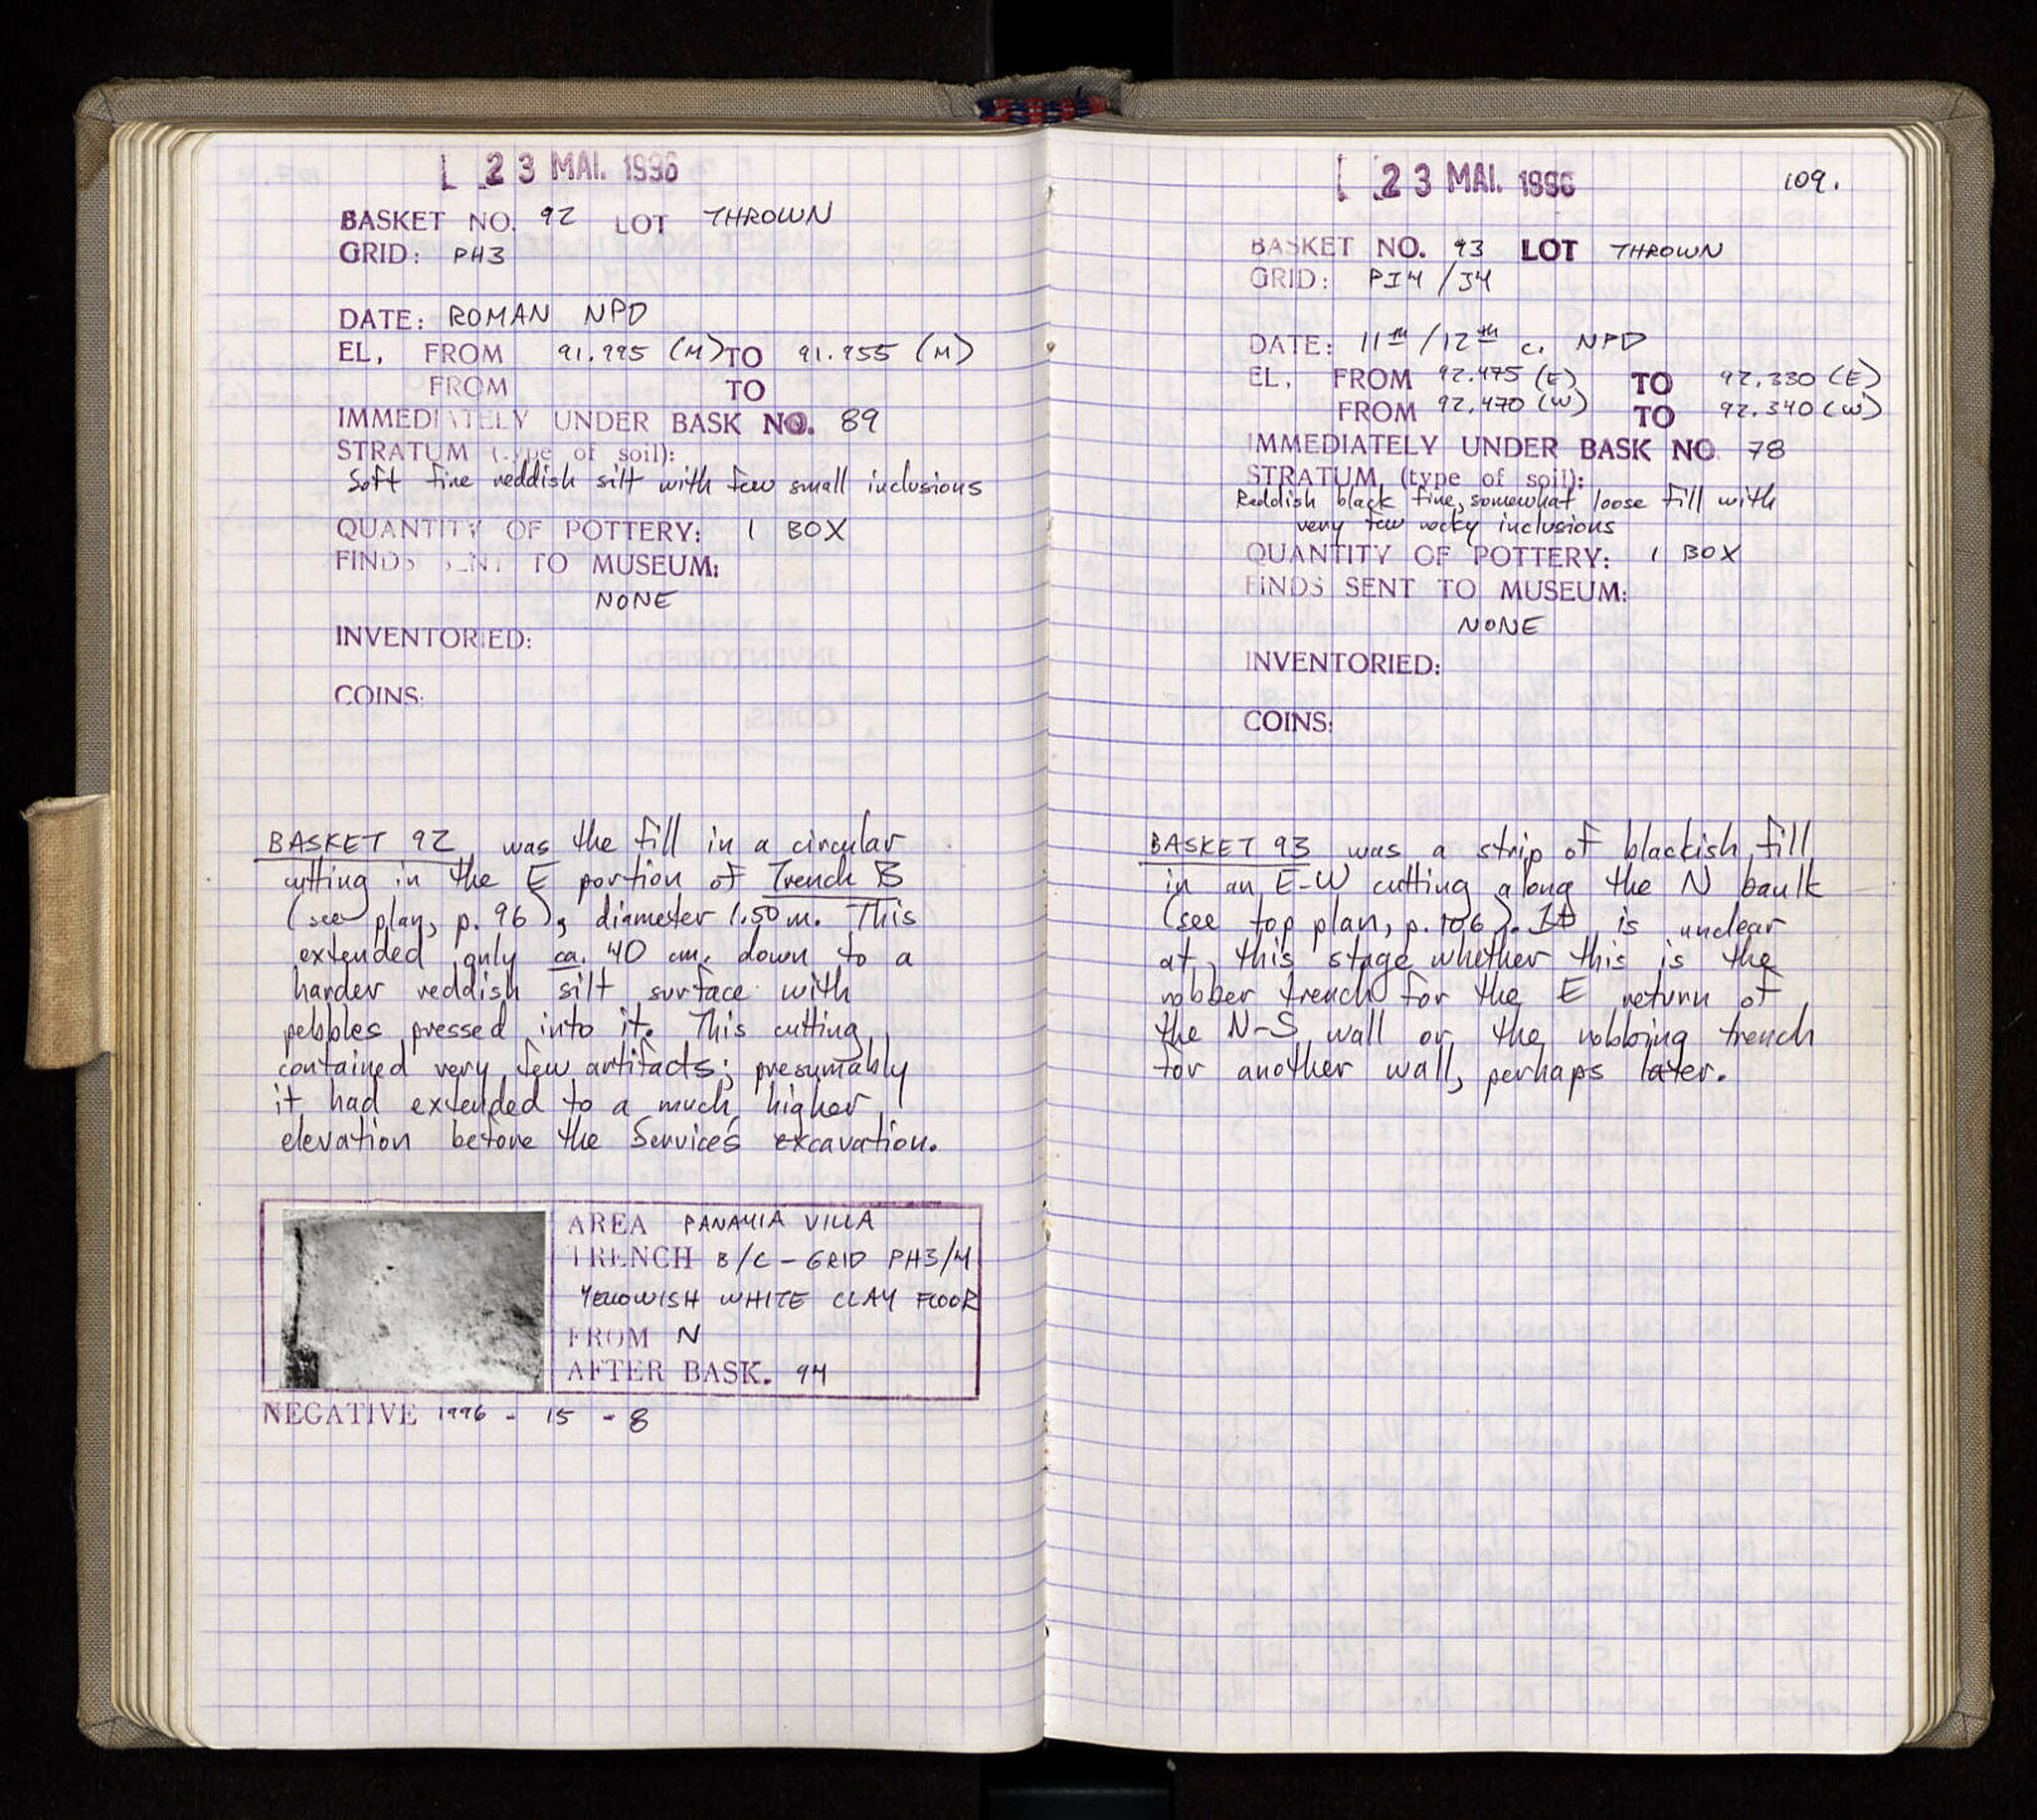 23 MAI. 1996
BASKET NO. 92 LOT THROWN
GRID: PH3
DATE: ROMAN NPD
EL, FROM 91.995 (M) TO 91.955 (M)
FROM TO
IMMEDIATELY UNDER BASK NO. 89
STRATUM (type of soil):
Soft fine reddish silt with few small inclusions
QUANTITY OF POTTERY: 1 BOX
FINDS SENT TO MUSEUM:
NONE
INVENTORIED:
COINS:
BASKET 92 was the fill in a circular
cutting in the E portion of Trench B
(see plan, p. 96), diameter 1.50 m. This
extended only ca. 40 cm. down to a
harder reddish silt surface with
pebbles pressed into it. This cutting
contained very few artifacts; presumably
it had extended to a much higher
elevation before the Service's excavation.
AREA PANAYIA VILLA
TRENCH B/C - GRID PH3/4
YELLOWISH WHITE CLAY FLOOR
FROM N
AFTER BASK. 94
NEGATIVE 1996 - 15 - 8
23 MAI. 1996
109.
BASKET NO. 93 LOT THROWN
GRID: PI4/J4
DATE: 11th/12th c. NPD
EL, FROM 92.475 (E) TO 92.330 (E)
FROM 92.470 (W) TO 92.340 (W)
IMMEDIATELY UNDER BASK NO. 78
STRATUM (type of soil):
Reddish black fine, somewhat loose fill with
very few rocky inclusions
QUANTITY OF POTTERY: 1 BOX
FINDS SENT TO MUSEUM:
NONE
INVENTORIED:
COINS:
BASKET 93 was a strip of blackish fill
in an E-W cutting along the N baulk
(see top plan, p. 106). It is unclear
at this stage whether this is the
robber trench for the E return of
the N-S wall or the robbing trench
for another wall, perhaps later.